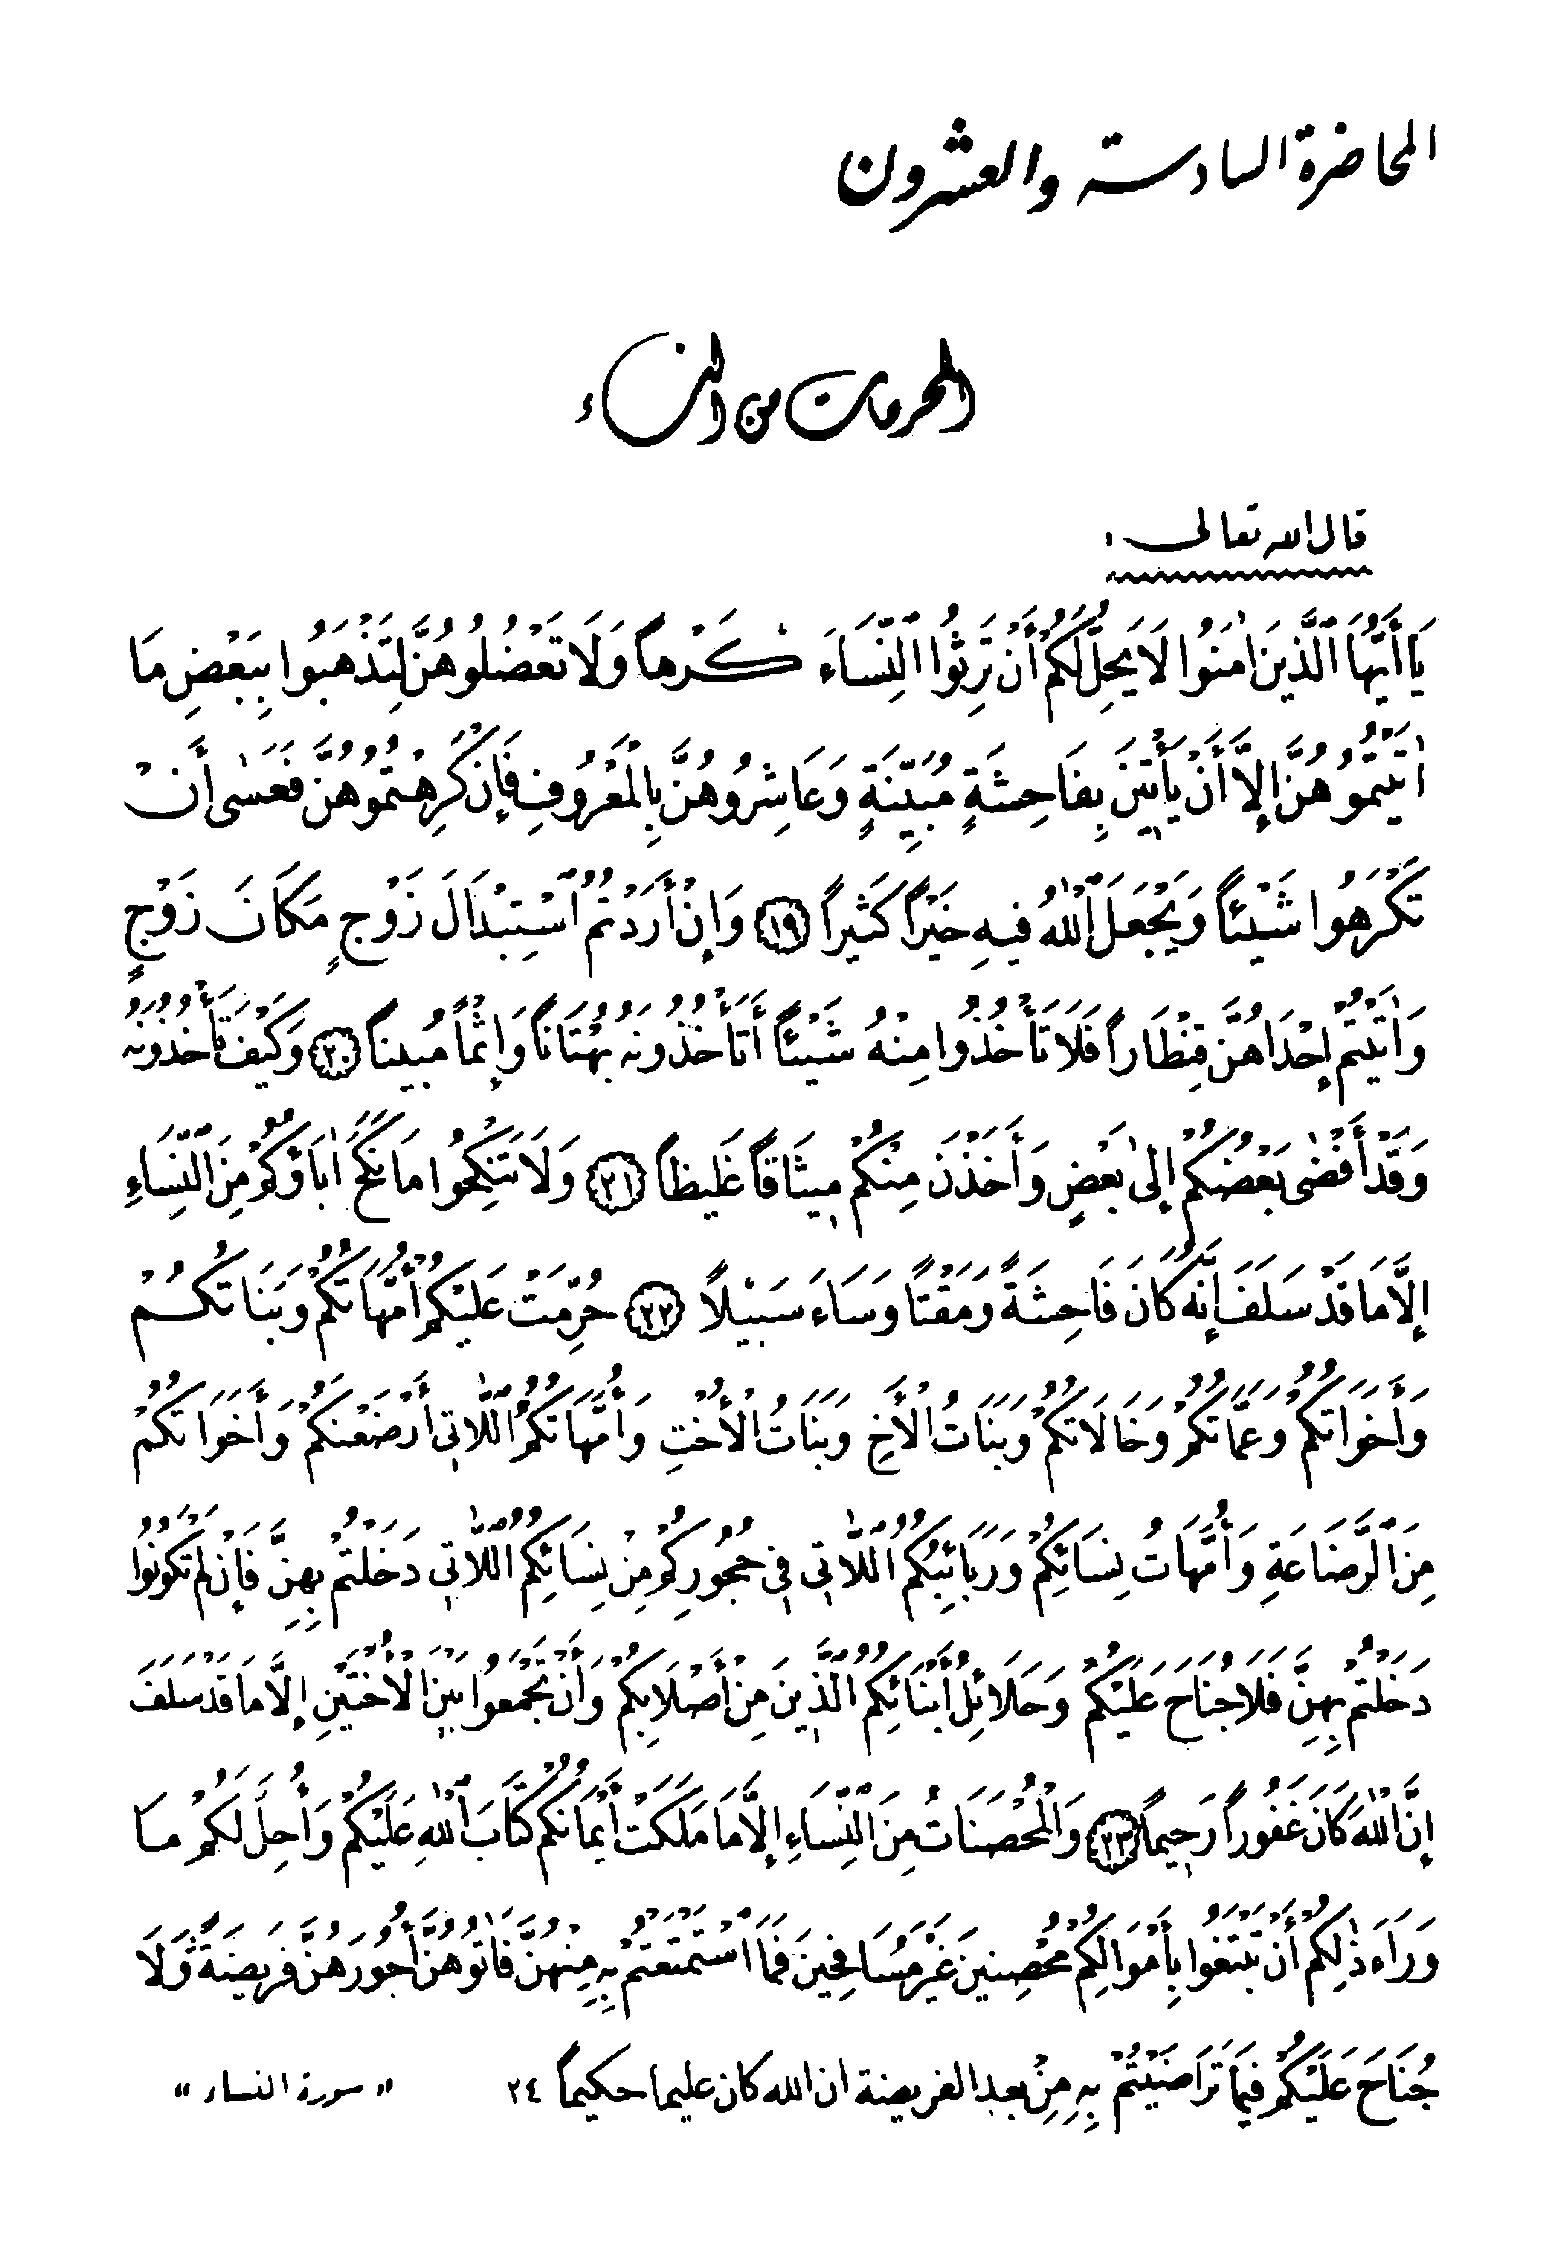 المحاضرة السادسة والعشرون
المحرمات من النساء
قال الله تعالى :
يَا أَيُّهَا ٱلَّذِينَ اٰمَنُوا لَا يَحِلُّ لَكُمْ أَنْ تَرِثُوا ٱلنِّسَاءَ كَرْهاً وَلَا تَعْضُلُوهُنَّ لِتَذْهَبُوا بِبَعْضِ مَا
اٰتَيْتُمُوهُنَّ إِلاَّ أَنْ يَأْتِينَ بِفَاحِشَةٍ مُبَيِّنَةٍ وَعَاشِرُوهُنَّ بِالْمَعْرُوفِ فَإِنْ كَرِهْتُمُوهُنَّ فَعَسٰى أَنْ
تَكْرَهُوا شَيْئاً وَيَجْعَلَ ٱللّٰهُ فِيهِ خَيْراً كَثِيراً ١٩ وَإِنْ أَرَدْتُمُ ٱسْتِبْدَالَ زَوْجٍ مَكَانَ زَوْجٍ
وَاٰتَيْتُمْ إِحْدَاهُنَّ قِنْطَاراً فَلَا تَأْخُذُوا مِنْهُ شَيْئاً أَتَأْخُذُونَهُ بُهْتَاناً وَإِثْماً مُبِيناً ٢٠ وَكَيْفَ تَأْخُذُونَهُ
وَقَدْ أَفْضٰى بَعْضُكُمْ إِلىٰ بَعْضٍ وَأَخَذْنَ مِنْكُمْ مِيثَاقاً غَلِيظاً ٢١ وَلَا تَنْكِحُوا مَا نَكَحَ اٰبَاؤُكُمْ مِنَ ٱلنِّسَاءِ
إِلَّا مَا قَدْ سَلَفَ إِنَّهُ كَانَ فَاحِشَةً وَمَقْتًا وَسَاءَ سَبِيْلاً ٢٢ حُرِّمَتْ عَلَيْكُمْ أُمَّهَاتُكُمْ وَبَنَاتُكُمْ
وَأَخَوَاتُكُمْ وَعَمَّاتُكُمْ وَخَالَاتُكُمْ وَبَنَاتُ الْأَخِ وَبَنَاتُ الْأُخْتِ وَأُمَّهَاتُكُمُ ٱللَّاتِي أَرْضَعْنَكُمْ وَأَخَوَاتُكُمْ
مِنَ ٱلرَّضَاعَةِ وَأُمَّهَاتُ نِسَائِكُمْ وَرَبَائِبُكُمُ ٱللَّاتِي فِي حُجُورِكُمْ مِنْ نِسَائِكُمُ ٱللَّاتِي دَخَلْتُمْ بِهِنَّ فَإِنْ لَمْ تَكُونُوا
دَخَلْتُمْ بِهِنَّ فَلَا جُنَاحَ عَلَيْكُمْ وَحَلَائِلُ أَبْنَائِكُمُ ٱلَّذِينَ مِنْ أَصْلَابِكُمْ وَأَنْ تَجْمَعُوا بَيْنَ الْأُخْتَيْنِ إِلَّا مَا قَدْ سَلَفَ
إِنَّ ٱللّٰهَ كَانَ غَفُوراً رَحِيماً ٢٣ وَالْمُحْصَنَاتُ مِنَ ٱلنِّسَاءِ إِلَّا مَا مَلَكَتْ أَيْمَانُكُمْ كِتَابَ ٱللّٰهِ عَلَيْكُمْ وَأُحِلَّ لَكُمْ مَا
وَرَاءَ ذٰلِكُمْ أَنْ تَبْتَغُوا بِأَمْوَالِكُمْ مُحْصِنِينَ غَيْرَ مُسَافِحِينَ فَمَا ٱسْتَمْتَعْتُمْ بِهِ مِنْهُنَّ فَاٰتُوهُنَّ أُجُورَهُنَّ فَرِيضَةً وَلَا
جُنَاحَ عَلَيْكُمْ فِيمَا تَرَاضَيْتُمْ بِهِ مِنْ بعد الفريضة ان الله كان عليما حكيماً ٢٤ « سورة النساء »